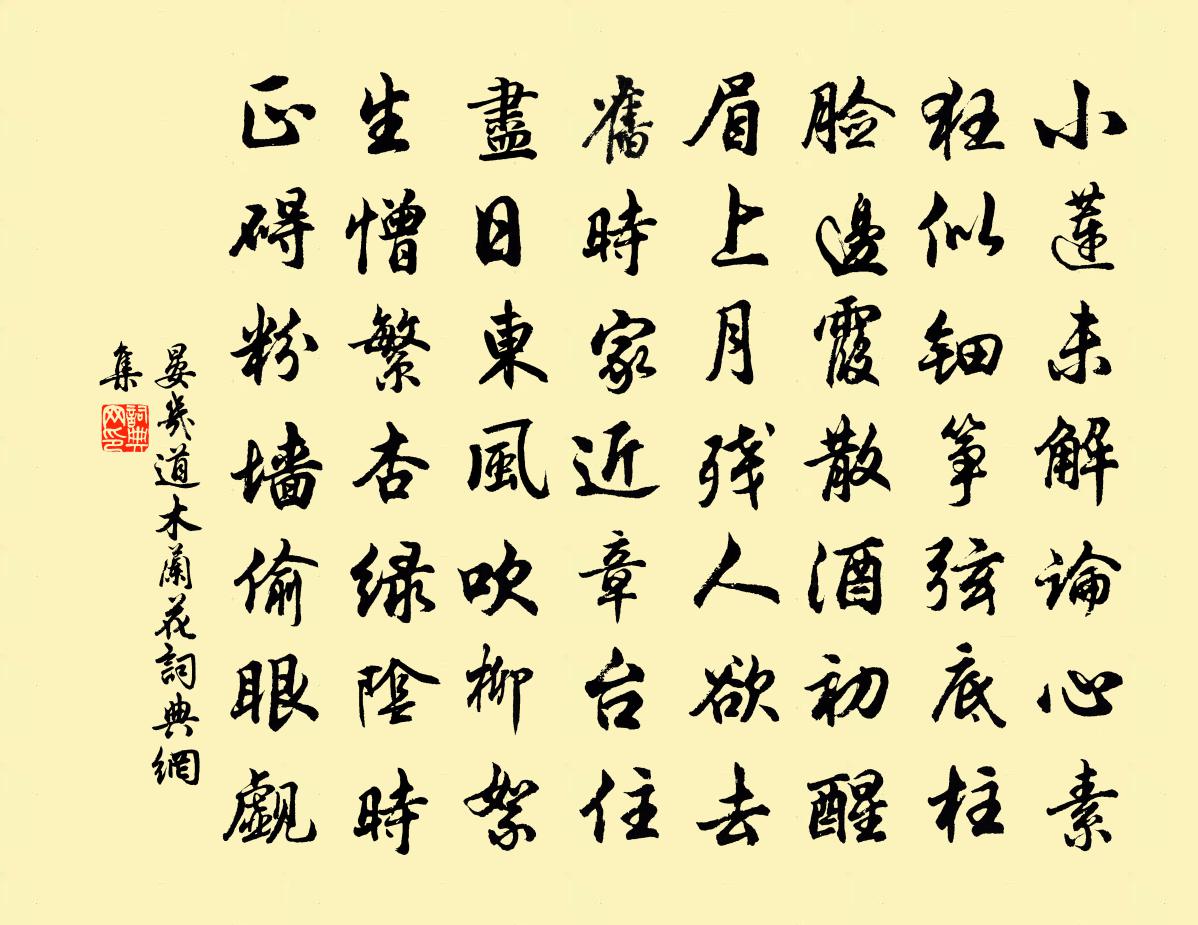 小蓮未解論心素
狂似钿筝弦底柱
脸邊霞散酒初醒
眉上月残人欲去
舊時家近章台住
盡日東風吹柳絮
生憎繁杏绿陰時
正碍粉墙偷眼覷
晏幾道木蘭花詞典網
集
詞典网印